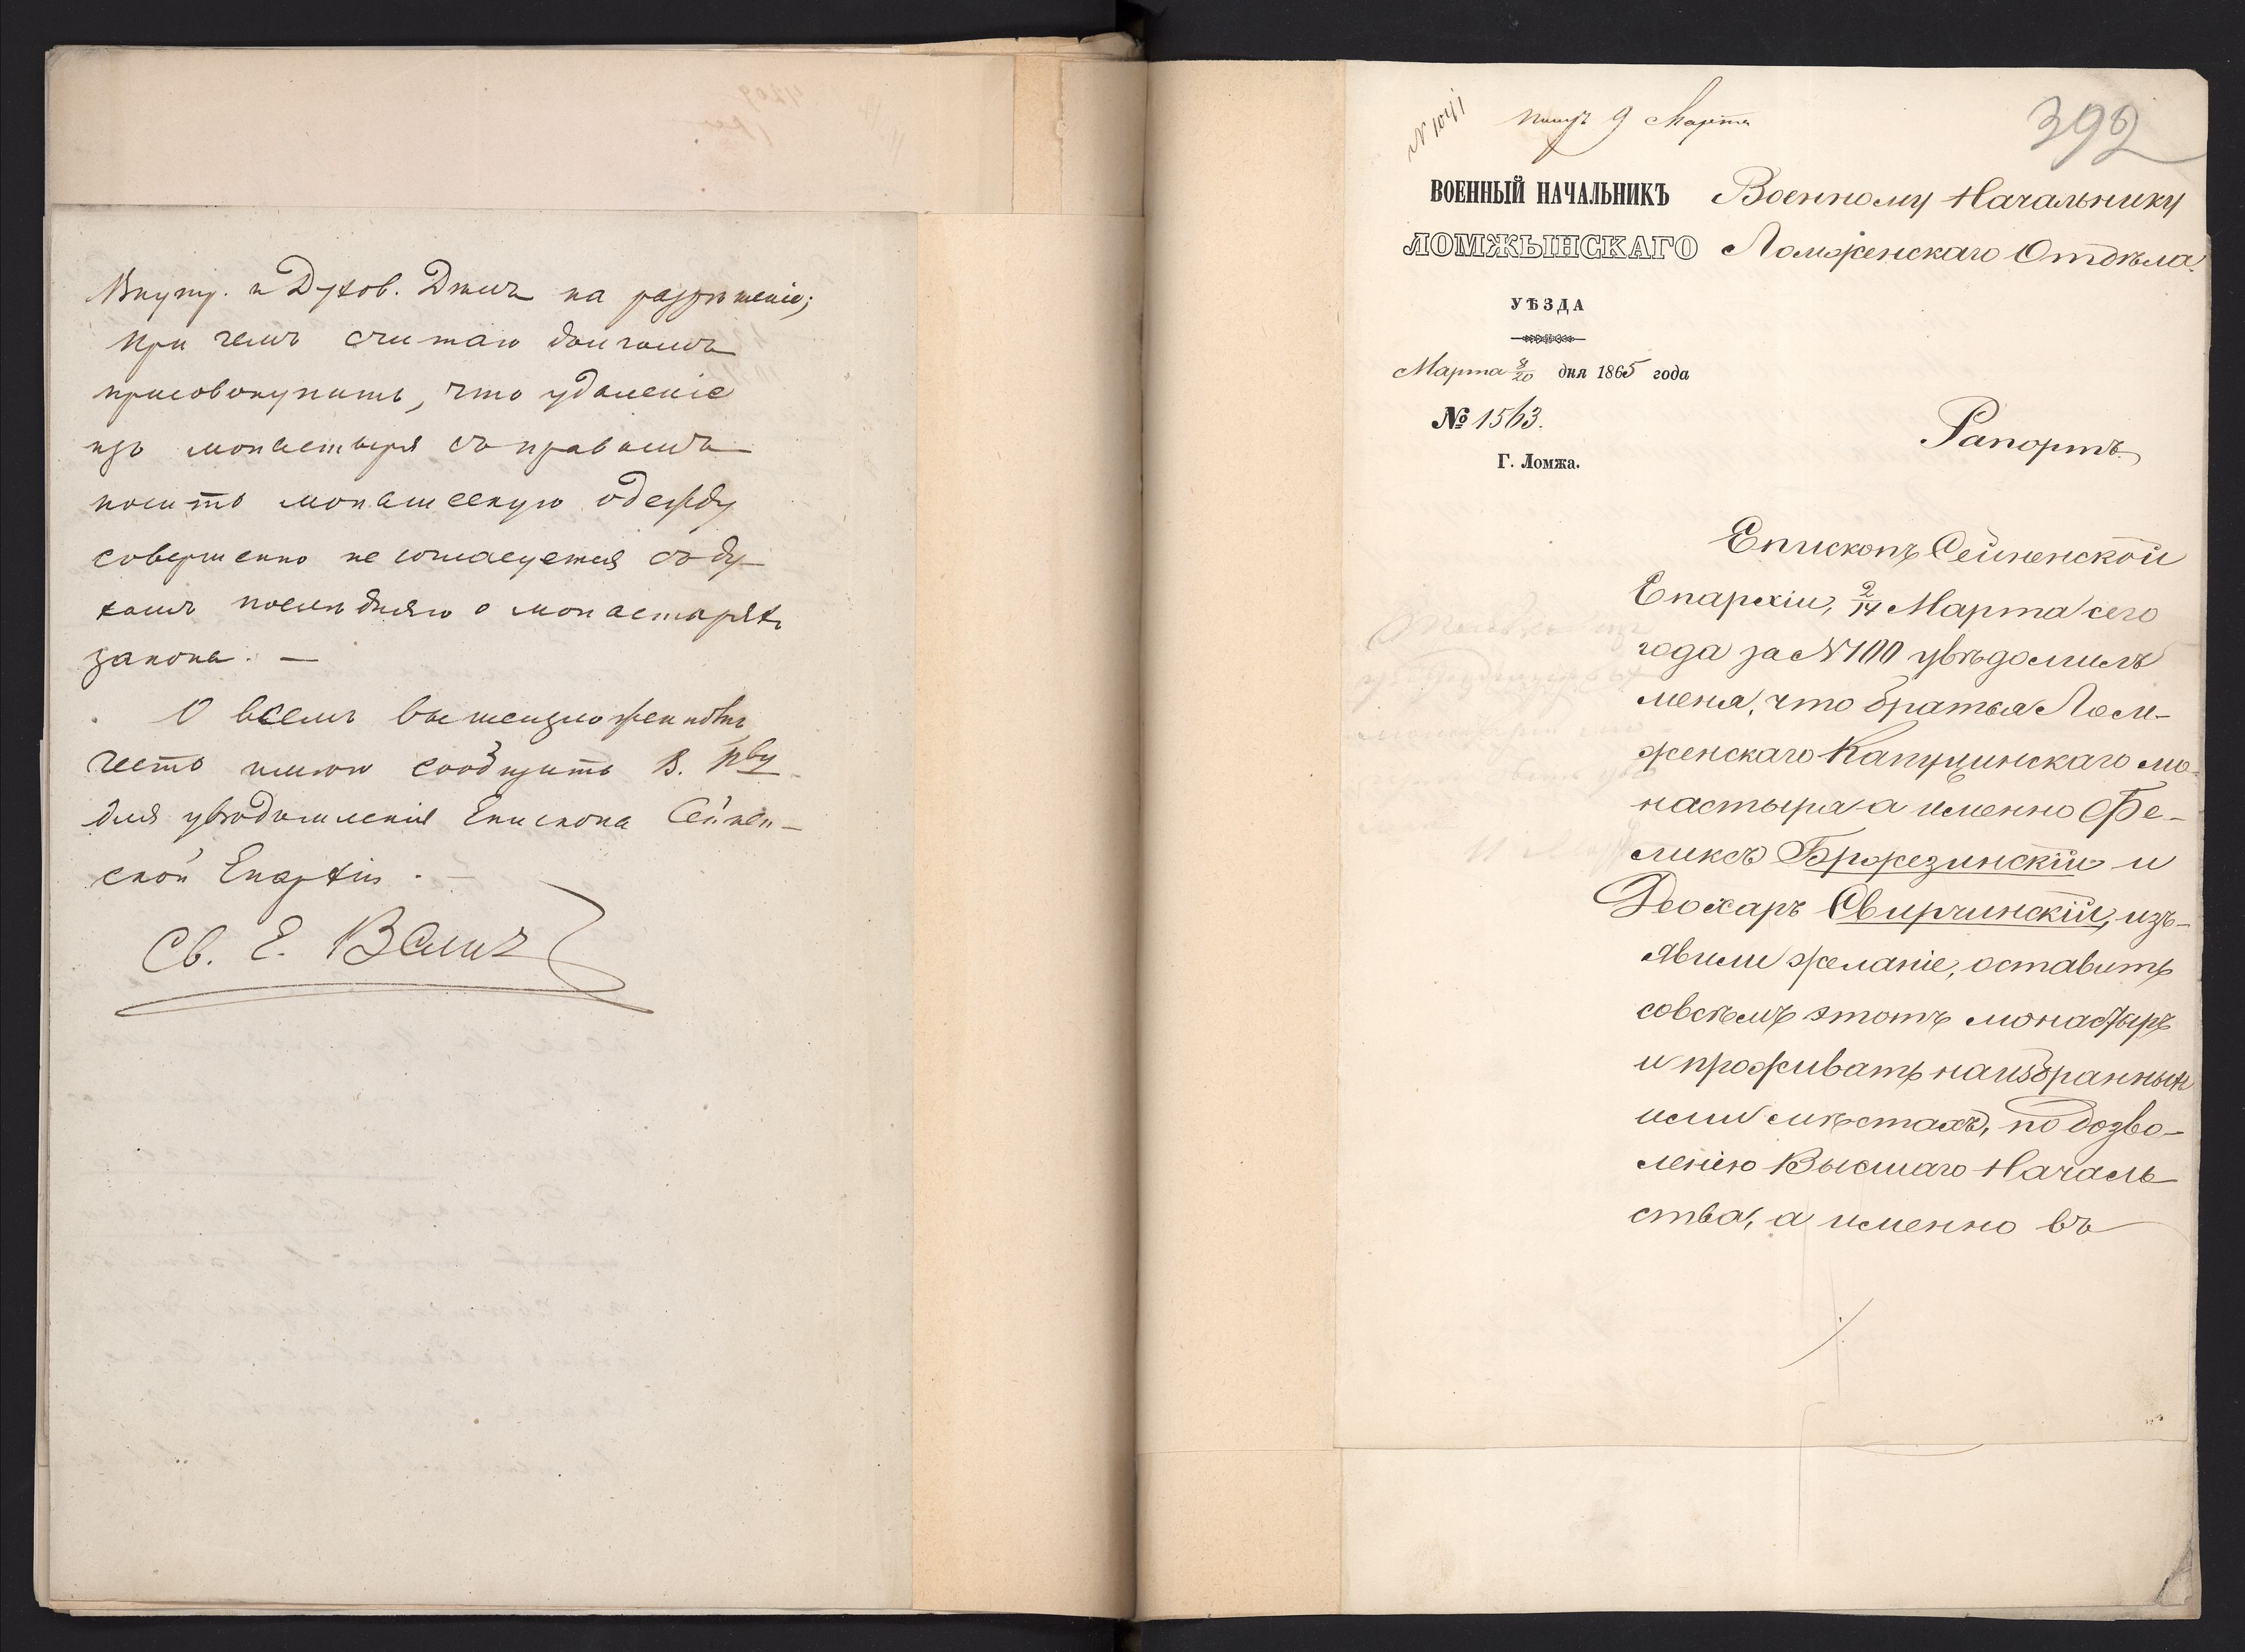 Внутр. и Духов. Дѣлъ на разрѣшеніе;
при чемъ считаю долгомъ
присовокупить, что удаленіе
изъ монастыря съ правомъ
носить монашескую одежду
совершенно не согласуется съ ду-
хомъ послѣдняго о монастыряхъ
закона. —
О всемъ вышеизложенномъ
честь имѣю сообщить В. Пву
для увѣдомленія Епископа Сейнен-
ской Епархіи. —
Св. Е. Велич
392
9 Марта
ВОЕННЫЙ НАЧАЛЬНИКЪ
ЛОМЖЫНСКАГО
УѢЗДА
Марта 8/20 дня 1865 года
№ 1563.
Г. Ломжа.
Военному Начальнику
Ломженскаго Отдѣла.
Рапортъ
Епископъ Сейненской
Епархіи, 2/14 Марта сего
года за №100 увѣдомилъ
меня, что братья Лом-
женскаго Капуцинскаго мо-
настыря а именно Фе-
ликсъ Бржезинскій и
Деохаръ Свирчинскій, изъ-
явили желаніе, оставить
совсѣмъ этотъ монастырь
и проживать на избранныхъ
ими мѣстахъ, по дозво-
ленію Высшаго Началь
ства, а именно въ